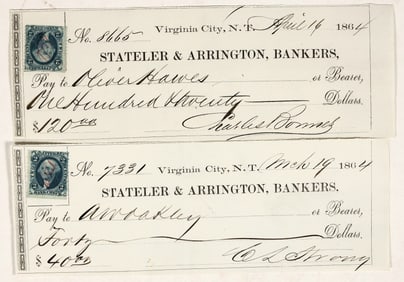 No. 8665 Virginia City, N.T. April 16 1864
STATELER & ARRINGTON, BANKERS,
Pay to Oliver Hawes or Bearer,
One Hundred & twenty Dollars.
$120.00 Charles Bonner
No. 7331 Virginia City, N.T. Mch 19 1864
STATELER & ARRINGTON, BANKERS,
Pay to A W Oakley or Bearer,
Forty Dollars.
$40.00 C L Strong